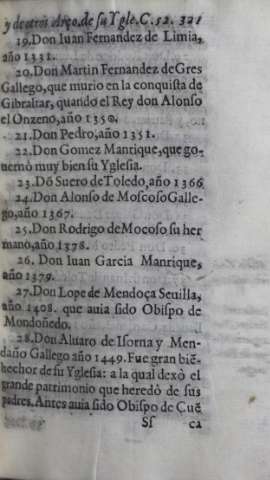 y de otros Arço.de su Ygle.C.52. 321
19.Don Iuan Fernandez de Limia,
año 1331.
20.Don Martin Fernandez de Gres
Gallego, que murio en la conquista de
Gibraltar, quando el Rey don Alonso
el Onzeno, año 1350.
21.Don Pedro, año 1351.
22.Don Gomez Manrique, que go-
uernò muy bien su Yglesia.
23.Dõ Suero de Toledo, año 1366
24.Don Alonso de Moscoso Galle-
go, año 1367.
25.Don Rodrigo de Mocoso su her
mano, año 1378.
26.Don Iuan Garcia Manrique,
año 1379.
27.Don Lope de Mendoça Seuilla,
año 1408. que auia sido Obispo de
Mondoñedo.
28.Don Aluaro de Isorna y Men-
daño Gallego año 1449. Fue gran biẽ-
hechor de su Yglesia: a la qual dexò el
grande patrimonio que heredò de sus
padres. Antes auia sido Obispo de Cuẽ
Sf ca